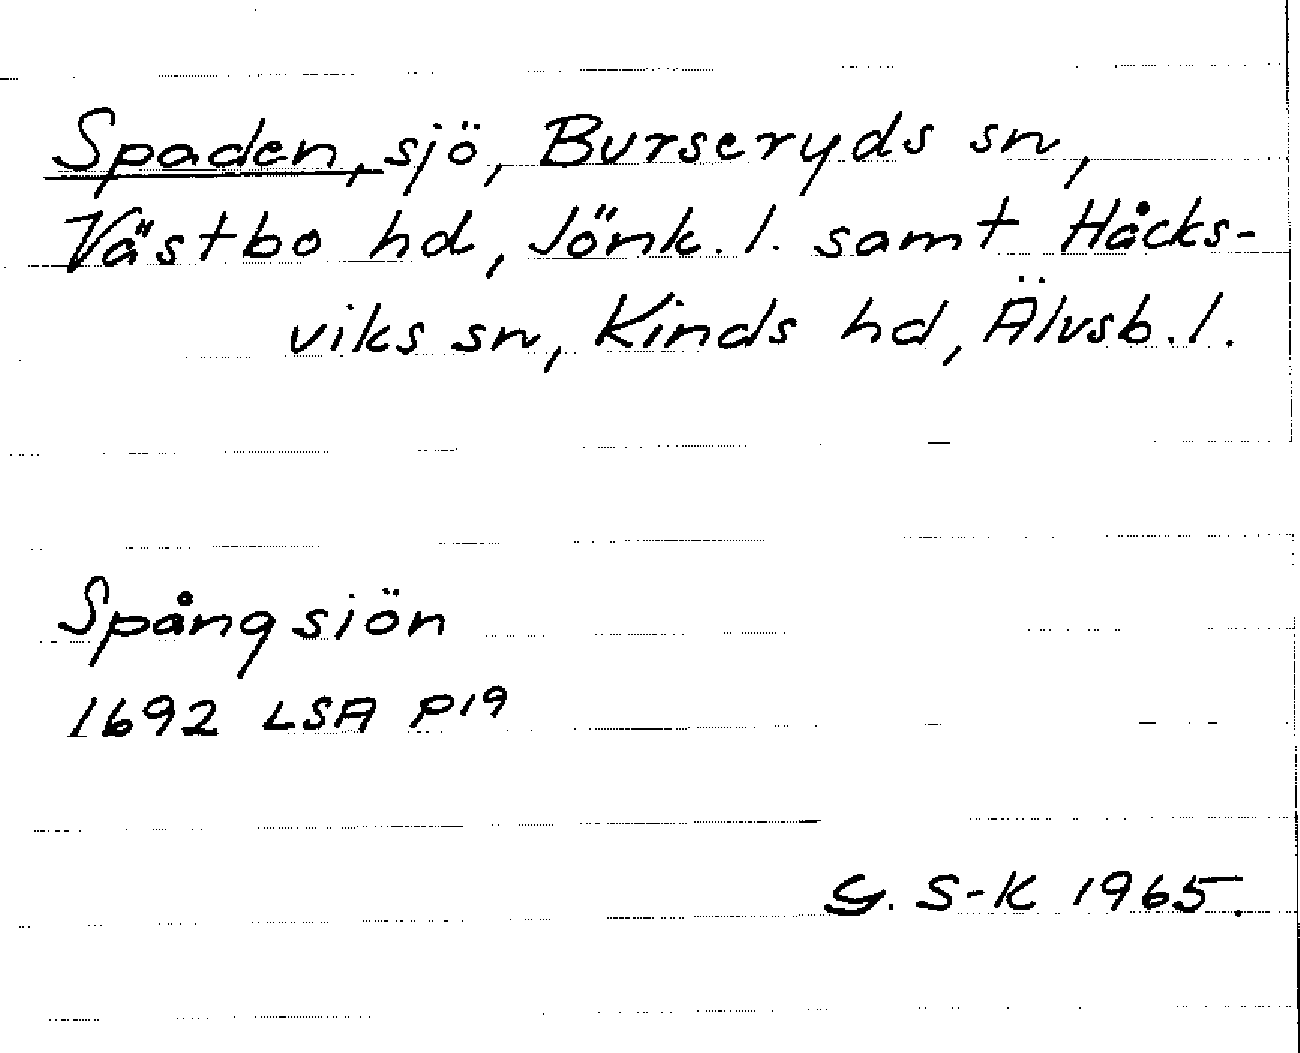 Spaden, sjö, Burseryds sn,
Västbo hd, Jönk. l. samt Håcks-
viks sn, Kinds hd, Älvsb. l.
Spångsiön
1692 LSA P19
G. S-K 1965.